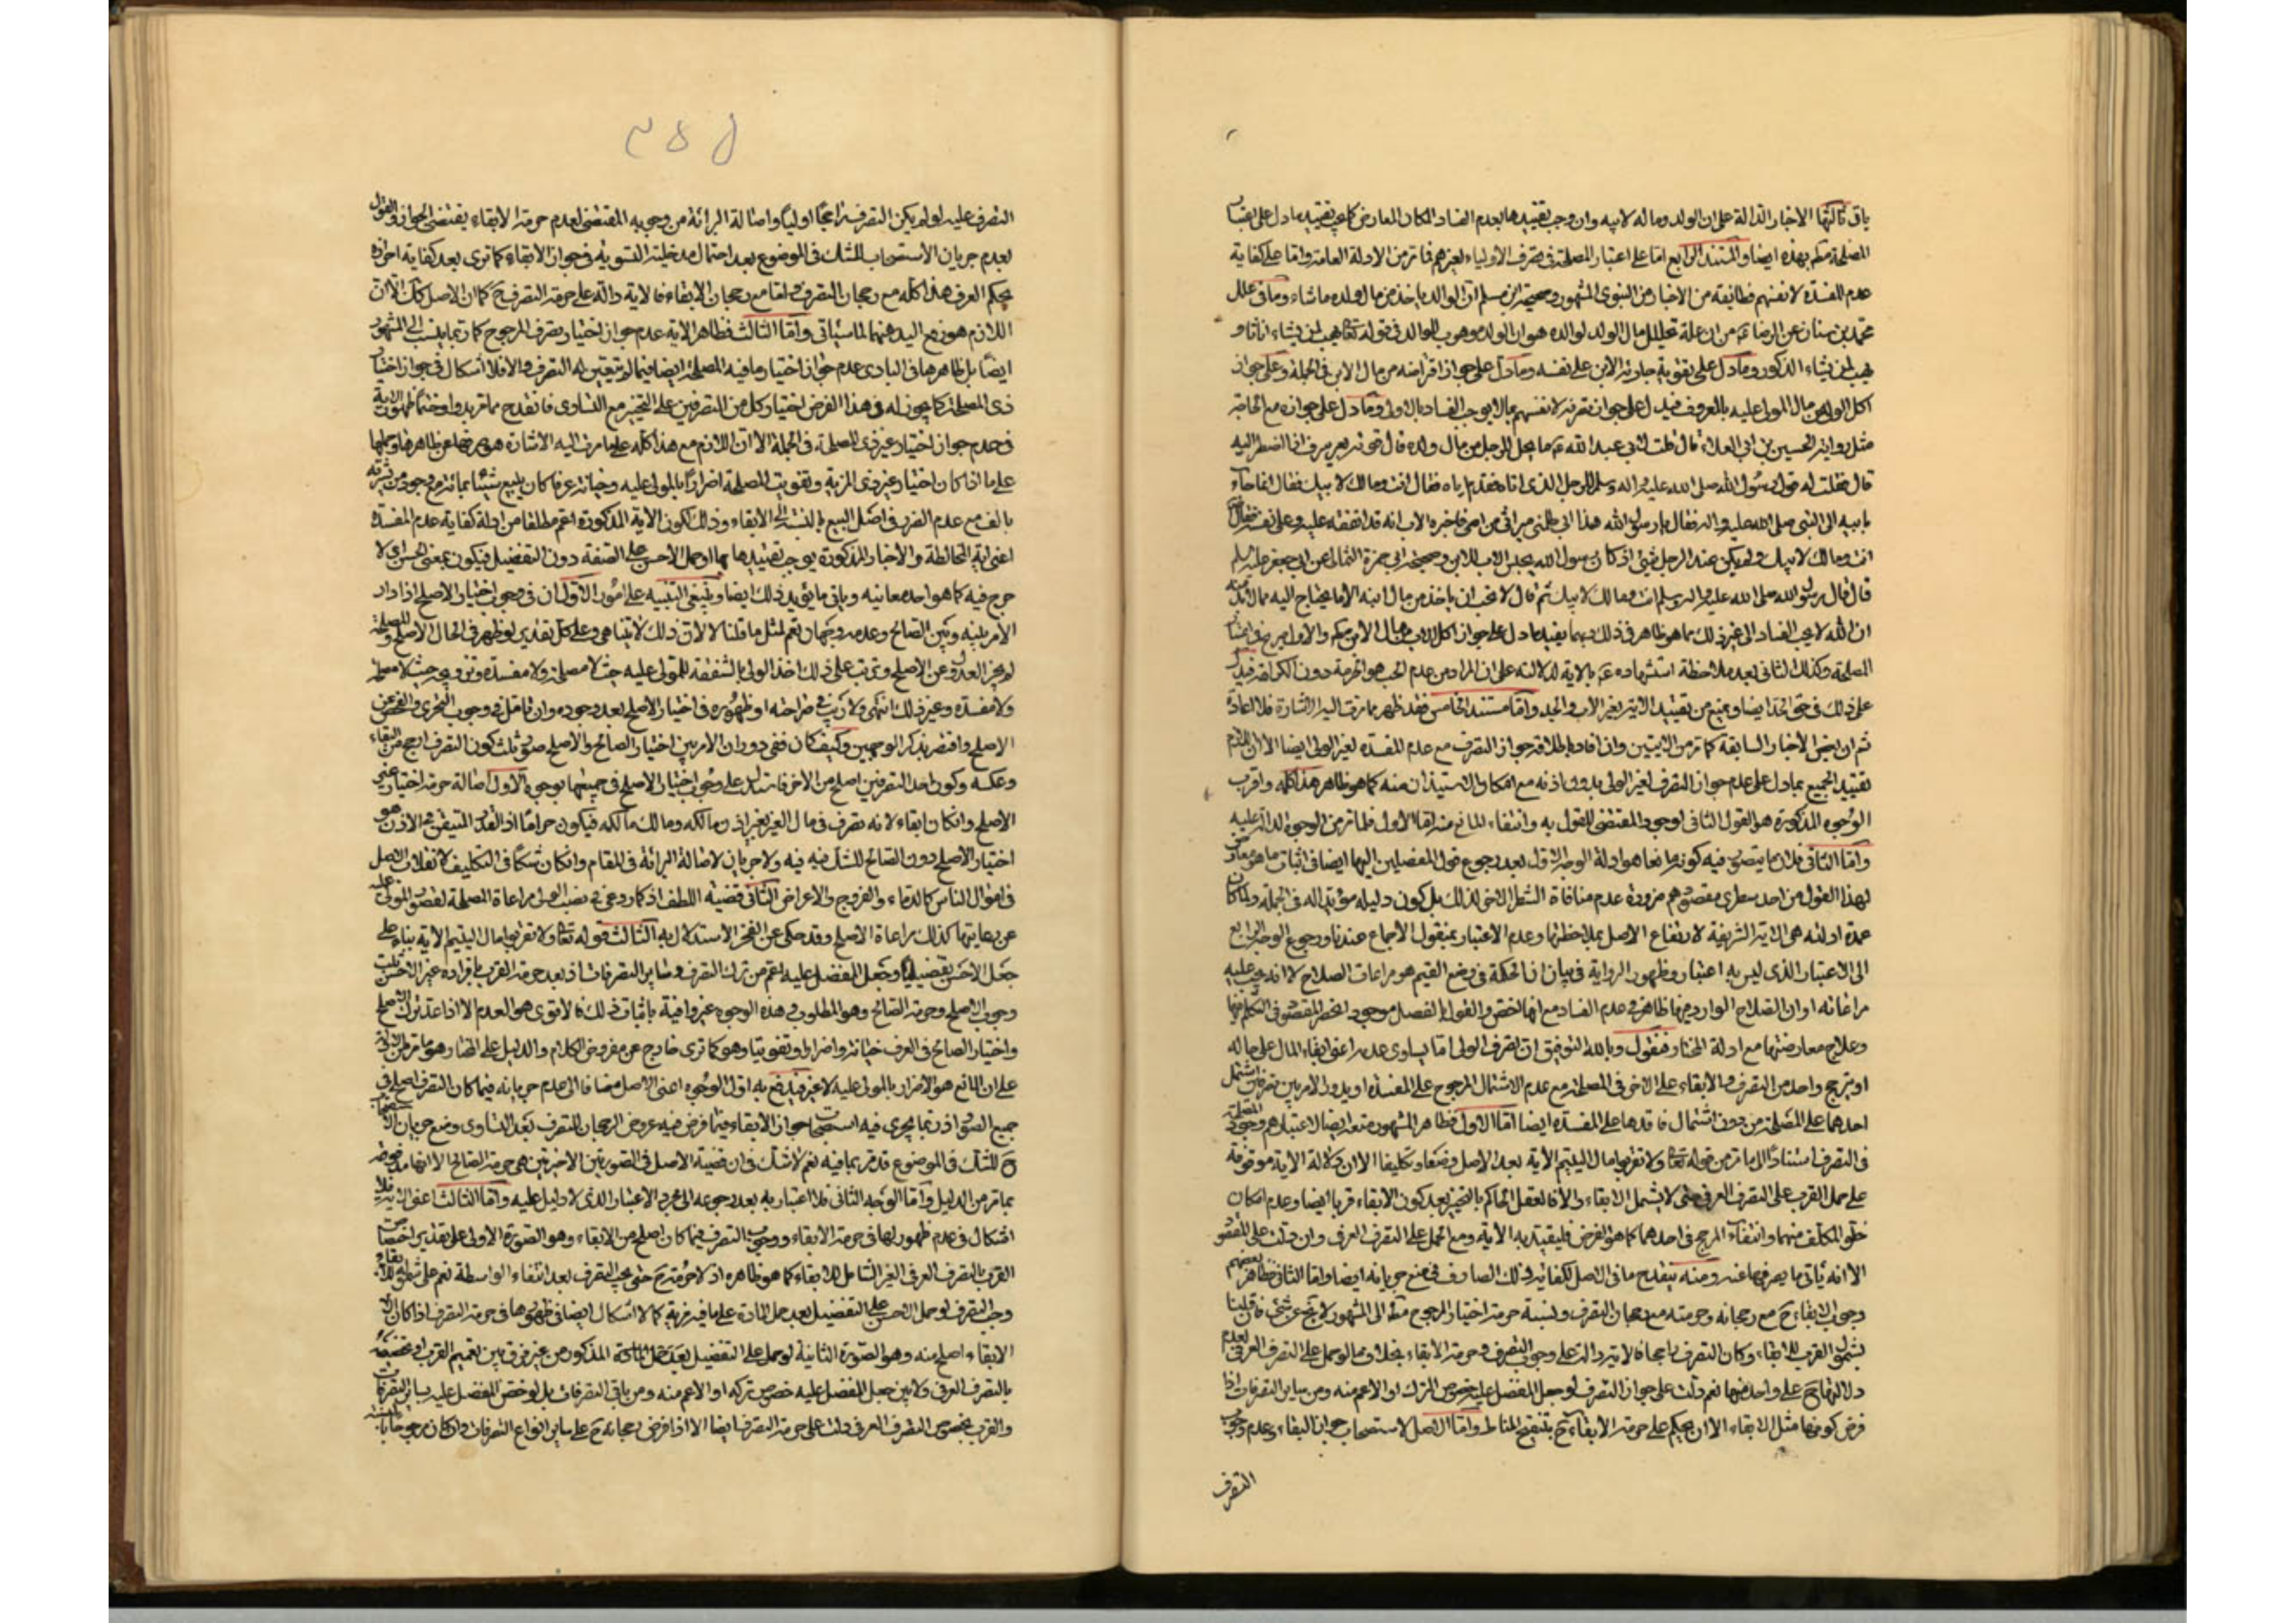 باق ثالثها الاخبار الدالة على ان الولد وماله لابيه وان وجب تقييدها بعدم الفساد لمكان المعارض كما يجب تقييده بما دل على اعتبار
المصلحة بهذه ايضا والمستند الرابع اما على اعتبار المصلحة في تصرف الاولياء لغيرهم فما مر من الادلة العامة واما على كفاية
عدم المفسدة لانفسهم فطائفة من الاخبار من النبوى المشهور وصحيحة ابن مسلم ان الوالد ياخذ من مال ولده ما شاء وما في علل
محمد بن سنان عن الرضا من ان علة تحليل مال الولد لوالده هو ان الولد موهوب للوالد في قوله تعالى يهب لمن يشاء اناثا و
يهب لمن يشاء الذكور وما دل على تقويم جارية الابن على نفسه وما دل على جواز اقتراضه من مال الابن في الجملة وعلى جواز
اكل الولى من مال المولى عليه بالمعروف فيدل على جواز تصرفه لانفسهم بما لا يوجب الفساد بالاولى وما دل على جوازه مع الحاجة
مثل رواية الحسين بن ابي العلاء قال قلت لابي عبد الله ما يحل للرجل من مال ولده قال قوته بغير سرف اذا اضطر اليه
قال فقلت له قول رسول الله صلى الله عليه واله وسلم للرجل الذى اتاه فقدم اباه فقال انت ومالك لابيك فقال انما جاء
بابيه الى النبى صلى الله عليه واله فقال يا رسول الله هذا ابي ظلمنى ميراثى من امى فاخبره الاب انه قد انفقه عليه وعلى نفسه فقال
انت ومالك لابيك ولم يكن عند الرجل شئ او كان رسول الله يحبس الاب للابن وصحيحة ابي حمزة الثمالى عن ابي جعفر عليه السلم
قال قال رسول الله صلى الله عليه واله لرجل انت ومالك لابيك ثم قال لا نحب ان ياخذ من مال ابنه الا ما يحتاج اليه مما لابد منه
ان الله لا يحب الفساد الى غير ذلك مما هو ظاهر في ذلك وبهما يقيد ما دل على جواز اكل الاب من مال الابن والاول صريح في اعتبار
المصلحة وكذلك الثانى بعد ملاحظة استشهاده بالاية لدلالته على ان المراد من عدم الحب هو الحرمة دون الكراهة فيدل
على ذلك في حق الجد ايضا ويمنع من تقييد الاية بغير الاب والجد واما مستند الخامس فقد ظهر مما مرت اليه الاشارة فلا اعادة
ثم ان بعض الاخبار السابقة كما مر من الايتين وان افاد باطلاقه جواز التصرف مع عدم المفسدة لغير الولى ايضا الا ان اللازم
تقييد الجميع بما دل على عدم جواز التصرف لغير الولى بدون اذنه مع امكان الاستيذان منه كما هو ظاهر هذا كله واقرب
الوجوه المذكورة هو القول الثانى لوجود المقتضى للقول به وانتفاء المانع منه اما الاول فلما مر من الوجوه الدالة عليه
واما الثانى فلان ما يتصور فيه كونه مانعا هو ادلة الوجه الاول بعد رجوع قول المفصلين اليهما ايضا في اثبات ما هو معارض
لهذا القول من احد سطرى مقصدهم ضرورة عدم منافاة الشطر الاخر لذلك بل كون دليله مؤيدا له في الجملة ولما كان
عمدة ادلته هى الاية الشريفة لارتفاع الاصل بملاحظتها وعدم الاعتبار بمنقول الاجماع عندنا ورجوع الوجه الرابع
الى الاعتبار الذى ليس به اعتبار وظهور الرواية في بيان ان الحكمة في وضع القيم هو مراعات الصلاح لا انه يجب عليه
مراعاته او ان الصلاح الوارد فيها ظاهر في عدم الفساد مع انها اخص والقول بالفصل موجود انحصر المقصود في التكلم فيها
وعلاج معارضتها مع ادلة المختار فنقول وبالله التوفيق ان تصرف الولى اما يساوى عدمه اعنى ابقاء المال على حاله
او يترجح واحد من التصرف والابقاء على الاخر في المصلحة مع عدم الاشتمال المرجوح على المفسدة او يدور الامر بين تصرفين اشتمل
احدهما على المصلحة من دون اشتمال فاقدها على المفسدة ايضا اما الاول فظاهر المشهور منعه ايضا لاعتبارهم وجود المصلحة
في التصرف استنادا الى ما مر من قوله تعالى ولا تقربوا مال اليتيم الاية بعد الاصل وضعا وتكليفا الا ان دلالة الاية موقوفة
على حمل القرب على التصرف العرفى حتى لا يشمل الابقاء والا فالعقل الحاكم بالتخيير بعد كون الابقاء قربا ايضا وعدم امكان
خلو المكلف منهما وانتفاء المرجح في احدهما كما هو الفرض فليقيد به الاية ومع الحمل على التصرف العرفى وان دلت على المقصود
الا انه ياتى ما يصرفها عنه ومنه ينقدح ما في الاصل لكفاية ذلك الصارف في منع جريانه ايضا واما الثانى فظاهر بعضهم
وجوب الابقاء ح مع رجحانه وحرمته مع رجحان التصرف ونسبة حرمة اختيار المرجوح الى المشهور لا تخ عن شئ فان قلنا
بشمول القرب للابقاء وكان التصرف راجحا فالاية دالة على وجوب التصرف وحرمة الابقاء بخلاف ما لو حمل على التصرف العرفى لعدم
دلالتها ح على واحد منهما نعم دلت على جواز التصرف لو جعل المفضل عليه خصوص الترك او الاعم منه ومن ساير التصرفات اذا
فرض كونها مثل الابقاء الا ان يحكم على حرمة الابقاء ح بتنقيح المناط واما الاصل لاستصحاب جواز البقاء وعدم وجوب
التصرف
٣٥٥
التصرف عليه لو لم يكن التصرف راجحا اوليا واصالة البرائة من وجوبه المقتضى لعدم حرمة الابقاء يقتضى الجواز والقول
بعدم جريان الاستصحاب للشك في الموضوع بعد احتمال مدخلية التسوية في جواز الابقاء كما ترى بعد كفاية احرازه
بحكم العرف هذا كله مع رجحان التصرف واما مع رجحان الابقاء فالاية دالة على حرمة التصرف ح كما ان الاصل كك الا ان
اللازم هو رفع اليد عنهما لما سياتى واما الثالث فظاهر الاية عدم جواز اختيار تصرف المرجوح كما ربما ينسب الى المشهور
ايضا بل ظاهرها في البادى عدم جواز اختيار ما فيه المصلحة ايضا فيما لم يتعين له التصرف والا فلا اشكال في جواز اختيار
ذى المصلحة كما يجوز له في هذا الفرض اختيار كل من التصرفين على التخيير مع التساوى فانقدح مما مر بدوا وختما ظهور الاية
في عدم جواز اختيار غير ذى المصلحة في الجملة الا ان اللازم مع هذا كله على ما مرت اليه الاشارة هو صرفها عن ظاهرها وحملها
على ما اذا كان اختيار غير ذى المزية وتفويت المصلحة اضرارا بالمولى عليه وخيانة عرفا كان يبيع شيئا بمائة مع وجود من يشتريه
بالف مع عدم الضرر في اصل البيع بالنسبة الى الابقاء وذلك لكون الاية المذكورة اعم مطلقا من ادلة كفاية عدم المفسدة
اعنى اية المخالطة والاخبار المذكورة يوجب تقييدها بهما او حمل الاحسن على الصفة دون التفضيل فيكون بمعنى الحسن اى لا
حرج فيه كما هو احد معانيه وياتى ما يؤيد ذلك ايضا وينبغى التنبيه على امور الاول ان في وجوب اختيار الاصلح اذا دار
الامر بينه وبين الصالح وعدمه وجهان نعم لمثل ما قلنا لا لان ذلك لا يتناهى وعلى كل تقدير لو ظهر في الحال الاصلح والمصلحة
لم يجز العدول عن الاصلح ويترتب على ذلك اخذ الولى بالشفعة للمولى عليه حيث لا مصلحة ولا مفسدة وتزويجه حيث لا مصلحة
ولا مفسدة وغير ذلك انتهى ولا ريب في صراحته او ظهوره في اختيار الاصلح بعد وجوده وان تامل في وجوب التحرى والفحص عن
الاصلح واقتصر بذكر الوجهين وكيف كان ففى دوران الامر بين اختيار الصالح والاصلح صور ثلث كون التصرف ارجح من البقاء
وعكسه وكون احد التصرفين اصلح من الاخر فاستدل على وجوب اختيار الاصلح في جميعها بوجوه الاول اصالة حرمة اختيار غير
الاصلح وان كان ابقاء لانه تصرف في مال الغير بغير اذن مالكه ومالك مالكه فيكون حراما اذ القدر المتيقن من الاذن هو
اختيار الاصلح دون الصالح للشك فيه ولا جريان لاصالة البرائة في المقام وان كان شكا في التكليف لانقلاب الاصل
في اموال الناس كالدماء والفروج والاعراض الثانى قضية اللطف اذ كما روعى في نصب الولى مراعاة المصلحة لقصور المولى عليه
عن رعايتها كذلك مراعاة الاصلح وقد حكى عن الفخر الاستدلال به الثالث قوله تعالى ولا تقربوا مال اليتيم الاية بناء على
جعل الاحسن تفضيليا وجعل المفضل عليه اعم من ترك التصرف وساير التصرفات اذ بعد حرمة القرب بافراده غير الاحسن ثبت
وجوب الاصلح وحرمة الصالح وهو المطلوب وهذه الوجوه غير وافية باثبات ذلك فالاقوى هو العدم الا اذا عد ترك الاصلح
واختيار الصالح في العرف خيانة واضرارا وتفويتا وهو كما ترى خارج عن مفروض الكلام والدليل على المختار هو ما مر من الادلة
على ان المانع هو الاضرار بالمولى عليه لا غير فيندفع به اول الوجوه اعنى الاصل مضافا الى عدم جريانه فيما كان التصرف اصلح في
جميع الصور اذ ربما يجرى فيه استصحاب جواز الابقاء فيما فرض فيه عروض الرجحان للتصرف بعد التساوى ومنع جريان الاستصحاب
ح للشك في الموضوع قد مر بما فيه نعم لا شك في ان قضية الاصل في الصورتين الاخيرتين هى حرمة الصالح الا انها مدفوعة
بما مر من الدليل واما الوجه الثانى فلا اعتبار به بعد رجوعه الى مجرد الاعتبار الذى لا دليل عليه واما الثالث اعنى الاية فلا
اشكال في عدم ظهور لها في حرمة الابقاء ووجوب التصرف فيما كان اصلح من الابقاء وهو الصورة الاولى على تقدير اختصاص
القرب بالتصرف العرفى الغير الشامل للابقاء كما هو ظاهره اذ لا حرمة ح حتى يجب التصرف بعد انتفاء الواسطة نعم على شموله للابقاء
وجب التصرف لو حمل الاحسن على التفضيل بعد حمل المادة على ما فيه مزية كما لا اشكال ايضا في ظهورها في حرمة التصرف اذا كان
الابقاء اصلح منه وهو الصورة الثانية لو حمل على التفضيل بعد حمل المادة المذكور من غير فرق بين تعميم القرب او تخصيصه
بالتصرف العرفى ولا بين جعل المفضل عليه خصوص تركه او الاعم منه ومن باقى التصرفات بل لو خص المفضل عليه بساير التصرفات
والقرب بخصوص التصرف العرفى دلت على حرمة التصرف ايضا الا اذا فرض رجحانه ح على ساير انواع التصرفات وان كان مرجوحا بالنسبة